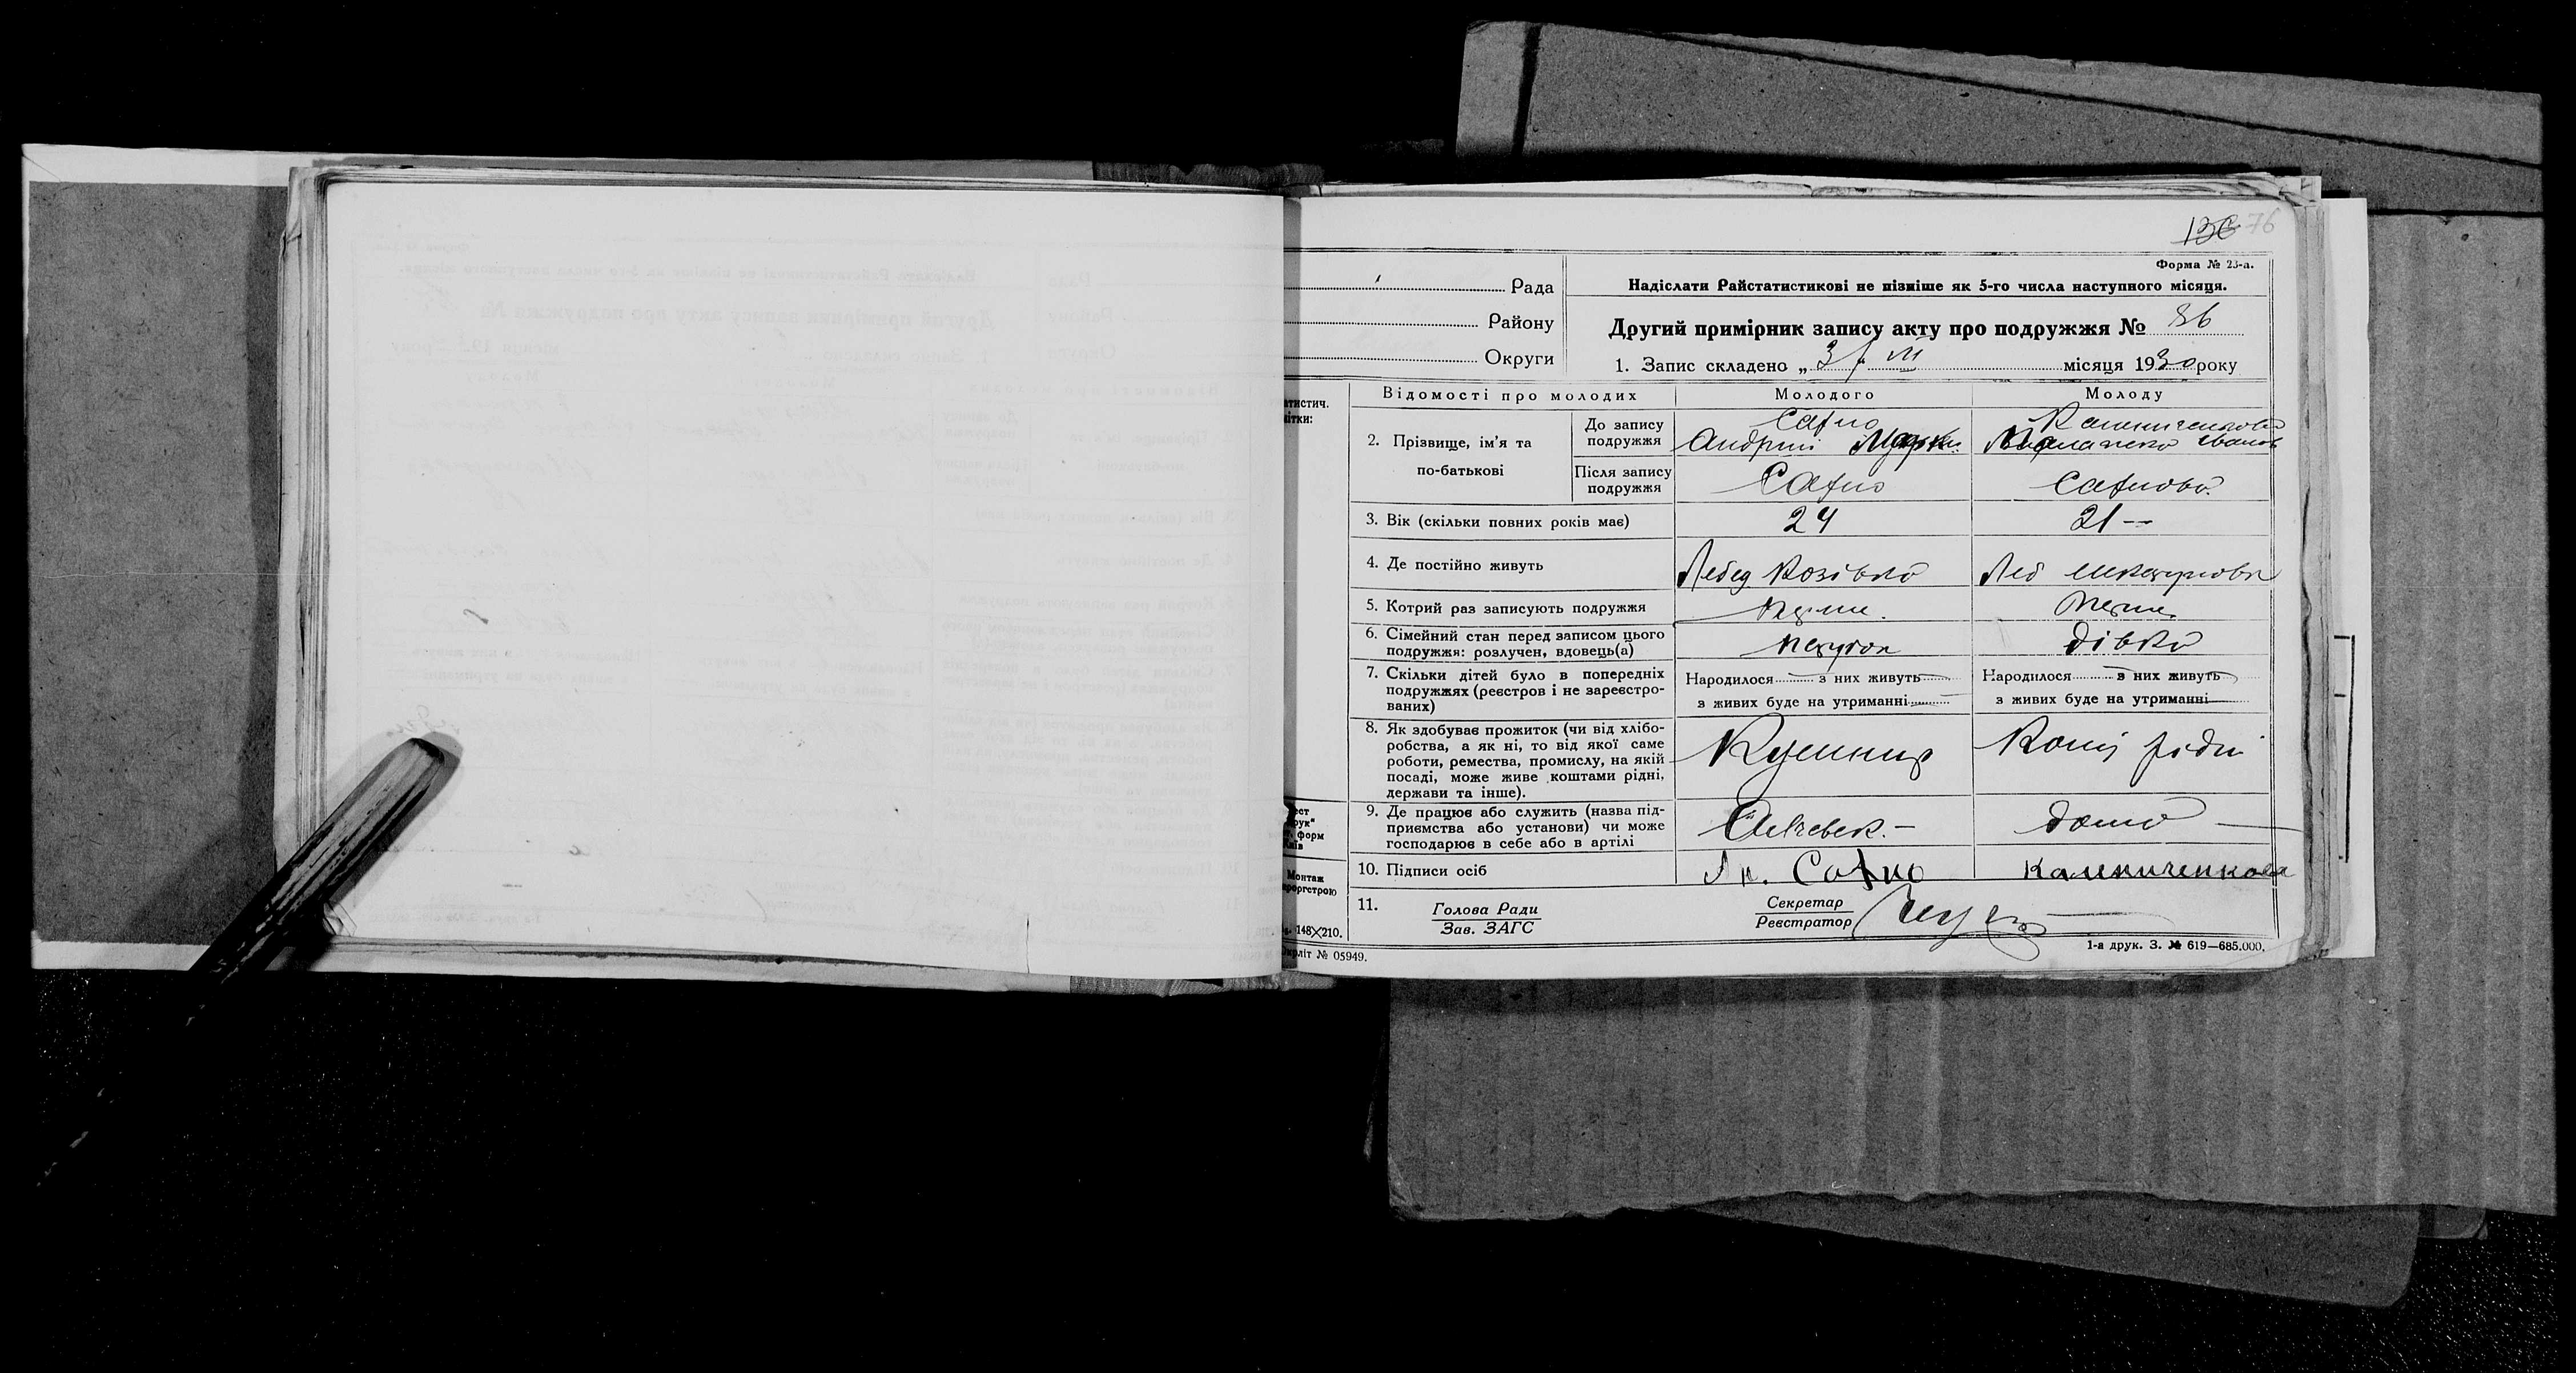 136 76
Форма № 23-а.
Рада
Району
Округи
Надіслати Райстатистикові не пізніше як 5-го числа наступного місяця.
Другий примірник запису акту про подружжя № 86
1. Запис складено „ 3 / VII місяця 1930 року
Відомості про молодих
Молодого
Молоду
атистич.
ітки:
2. Прізвище, ім'я та
по-батькові
До запису
подружжя
Сахно
Андрій Марк.
Калениченкова
Меланка Іванов
Після запису
подружжя
Сахно
Сахнова
3. Вік (скільки повних років має)
24
21 —
4. Де постійно живуть
Лебед Козівка
Леб
5. Котрий раз записують подружжя
перше.
перше
6. Сімейний стан перед записом цього
подружжя: розлучен, вдовець(а)
парубок
дівка
7. Скільки дітей було в попередніх
подружжях (реєстров і не зареєстро-
ваних)
Народилося з них живуть
з живих буде на утриманні
Народилося з них живуть
з живих буде на утриманні
8. Як здобуває прожиток (чи від хлібо-
робства, а як ні, то від якої саме
роботи, ремества, промислу, на якій
посаді, може живе коштами рідні,
держави та інше).
Кушнир
Кошт рідні
9. Де працює або служить (назва під-
приємства або установи) чи може
господарює в себе або в артілі
дома —
10. Підписи осіб
Ан. Сахно
Калениченкова
11.
Голова Ради
Зав. ЗАГС
Секретар
Реєстратор
ест
рук"
форм
Київ
Монтаж
проргстрою
148×210.
рліт № 05949.
1-а друк. З. № 619—685.000.